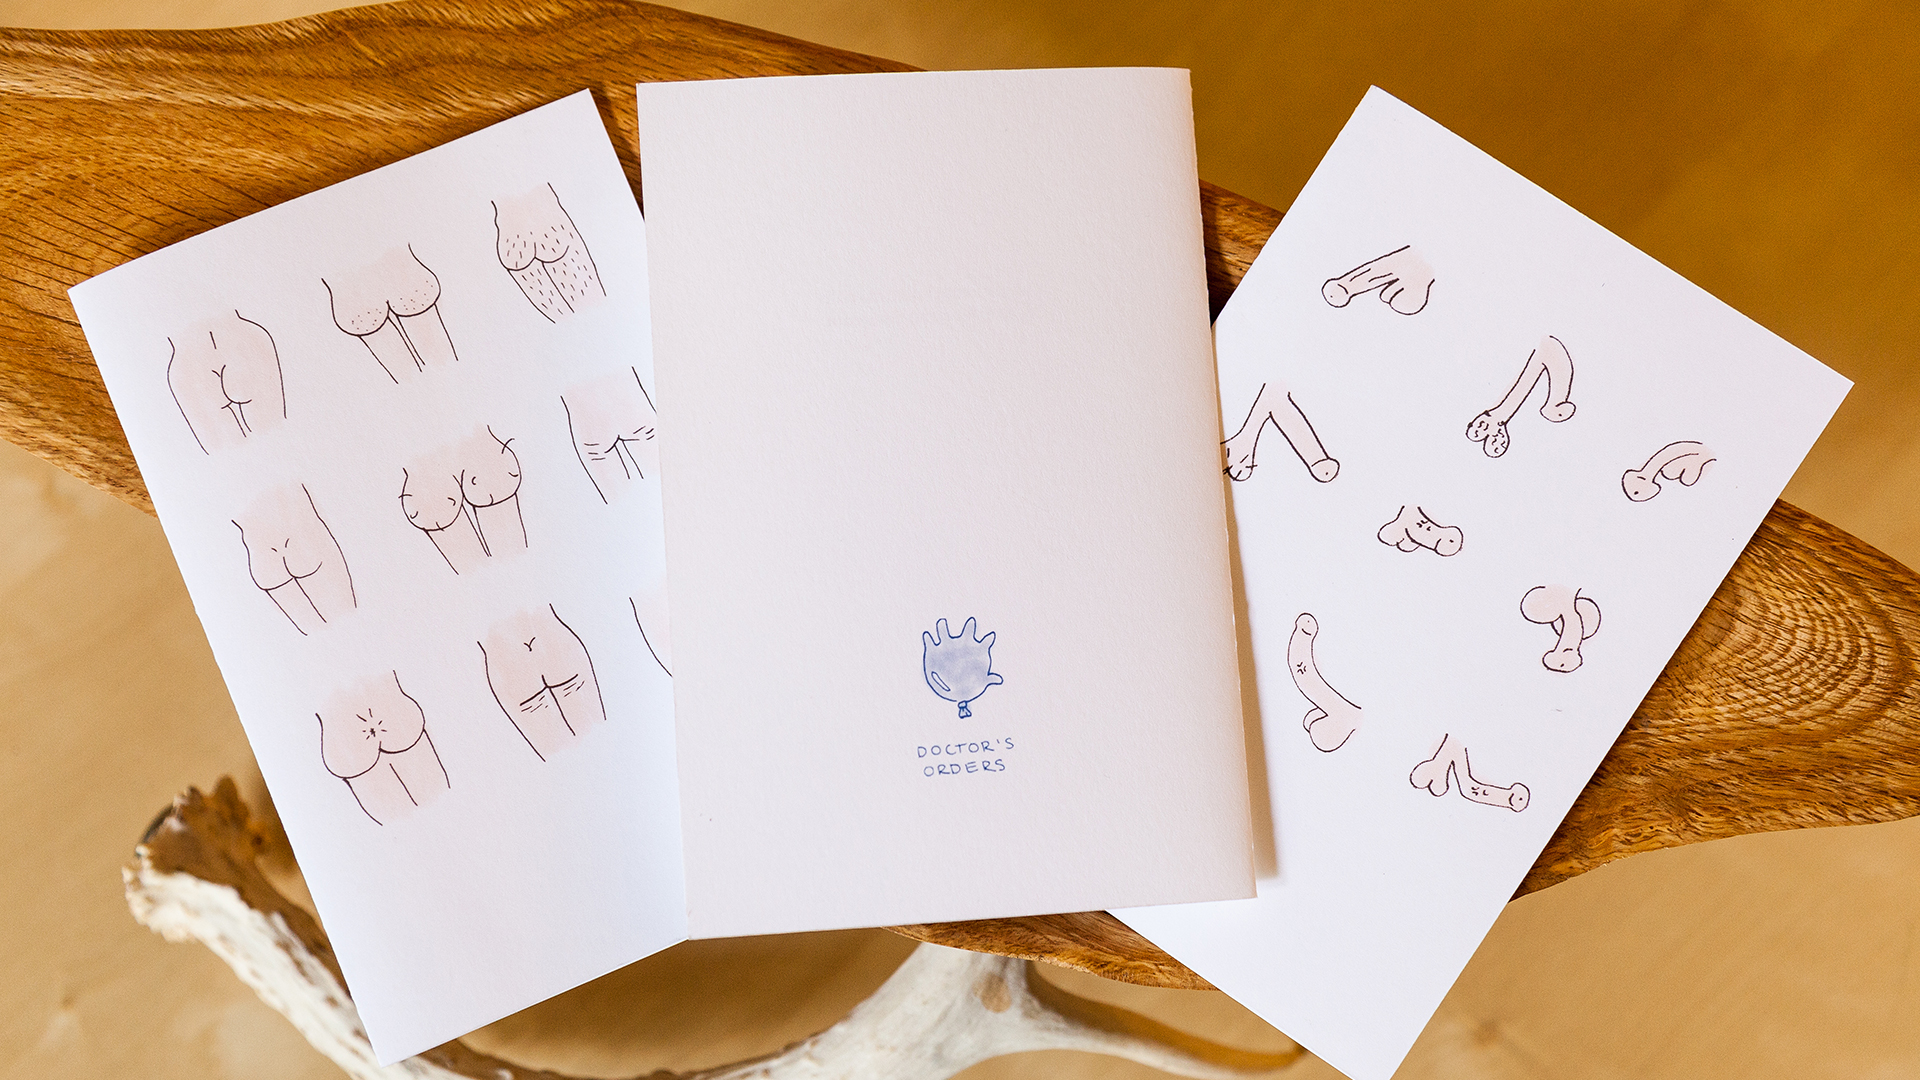 DOCTOR'S
ORDERS